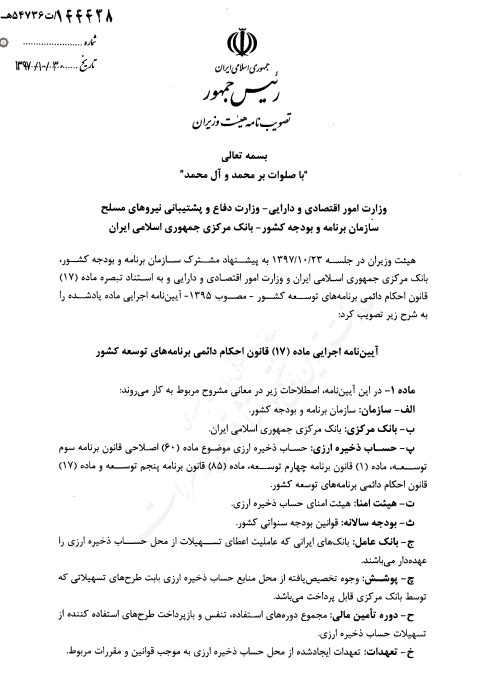 ۱۴۴۴۳۸/ت۵۴۷۳۶هـ
شماره
تاریخ ۱۳۹۷/۱۰/۳۰
جمهوری اسلامی ایران
رئیس جمهور
تصویب نامه هیئت وزیران
بسمه تعالی
"با صلوات بر محمد و آل محمد"
وزارت امور اقتصادی و دارایی- وزارت دفاع و پشتیبانی نیروهای مسلح
سازمان برنامه و بودجه کشور- بانک مرکزی جمهوری اسلامی ایران
هیئت وزیران در جلسه ۱۳۹۷/۱۰/۲۳ به پیشنهاد مشترک سازمان برنامه و بودجه کشور،
بانک مرکزی جمهوری اسلامی ایران و وزارت امور اقتصادی و دارایی و به استناد تبصره ماده (۱۷)
قانون احکام دائمی برنامه‌های توسعه کشور - مصوب ۱۳۹۵- آیین‌نامه اجرایی ماده یادشده را
به شرح زیر تصویب کرد:
آیین‌نامه اجرایی ماده (۱۷) قانون احکام دائمی برنامه‌های توسعه کشور
ماده ۱- در این آیین‌نامه، اصطلاحات زیر در معانی مشروح مربوط به کار می‌روند:
الف- سازمان: سازمان برنامه و بودجه کشور.
ب- بانک مرکزی: بانک مرکزی جمهوری اسلامی ایران.
پ- حساب ذخیره ارزی: حساب ذخیره ارزی موضوع ماده (۶۰) اصلاحی قانون برنامه سوم
توسعه، ماده (۱) قانون برنامه چهارم توسعه، ماده (۸۵) قانون برنامه پنجم توسعه و ماده (۱۷)
قانون احکام دائمی برنامه‌های توسعه کشور.
ت- هیئت امنا: هیئت امنای حساب ذخیره ارزی.
ث- بودجه سالانه: قوانین بودجه سنواتی کشور.
ج- بانک عامل: بانک‌های ایرانی که عاملیت اعطای تسهیلات از محل حساب ذخیره ارزی را
عهده‌دار می‌باشند.
چ- پوشش: وجوه تخصیص‌یافته از محل منابع حساب ذخیره ارزی بابت طرح‌های تسهیلاتی که
توسط بانک مرکزی قابل پرداخت می‌باشد.
ح- دوره تأمین مالی: مجموع دوره‌های استفاده، تنفس و بازپرداخت طرح‌های استفاده کننده از
تسهیلات حساب ذخیره ارزی.
خ- تعهدات: تعهدات ایجادشده از محل حساب ذخیره ارزی به موجب قوانین و مقررات مربوط.